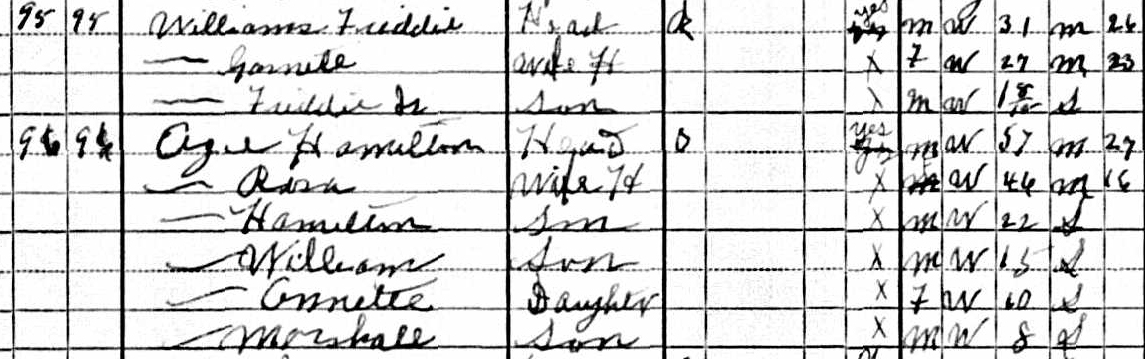 95 95 Williams Freddie Head R yes m W 31 m 26
— Garnete Wife H X F W 27 m 23
— Freddie Jr Son X m W 1 8/12 S
96 96 Agee Hamilton Head O yes m W 57 m 27
— Rosa Wife H X W 46 m 16
— Hamilton Son X m W 22 S
— William Son X m W 15 S
— Annette Daughter X F W 10 S
— Marshall Son X m W 8 S